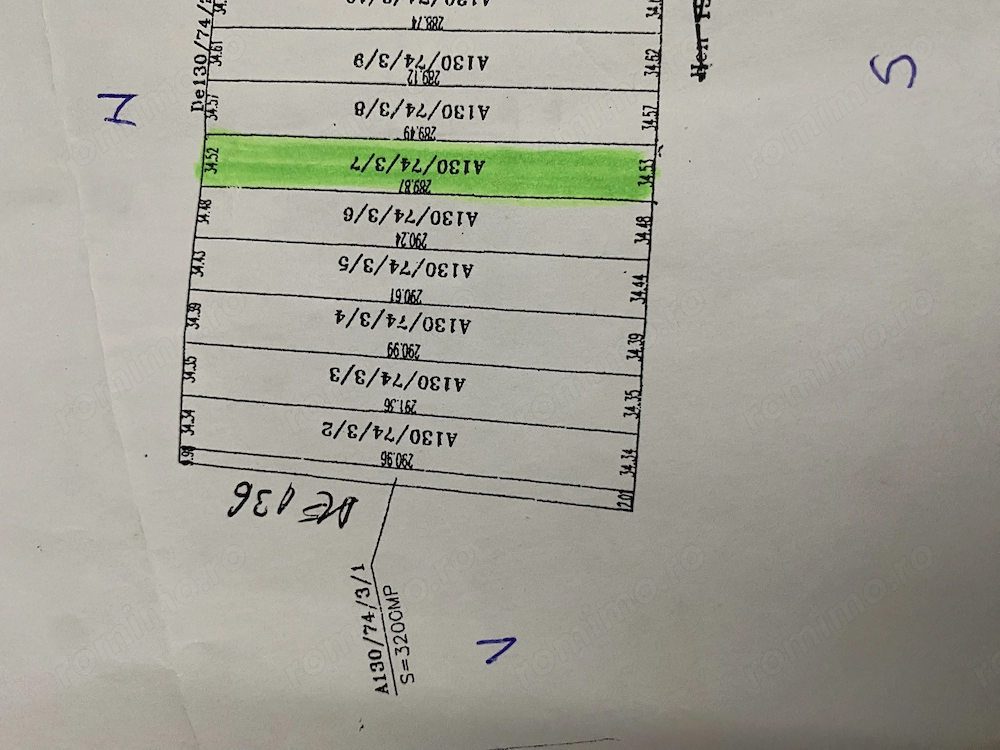 288.74
De130/74/
34.61
A130/74/3/9
34.62
289.12
N
S
34.57
A130/74/3/8
34.57
289.49
34.52
A130/74/3/7
34.53
289.87
34.48
A130/74/3/6
34.48
290.24
34.43
A130/74/3/5
34.44
290.61
34.39
A130/74/3/4
34.39
290.99
34.35
A130/74/3/3
34.35
291.36
34.34
A130/74/3/2
34.34
290.96
DE 136
A130/74/3/1
S=3200MP
V
romimo.ro